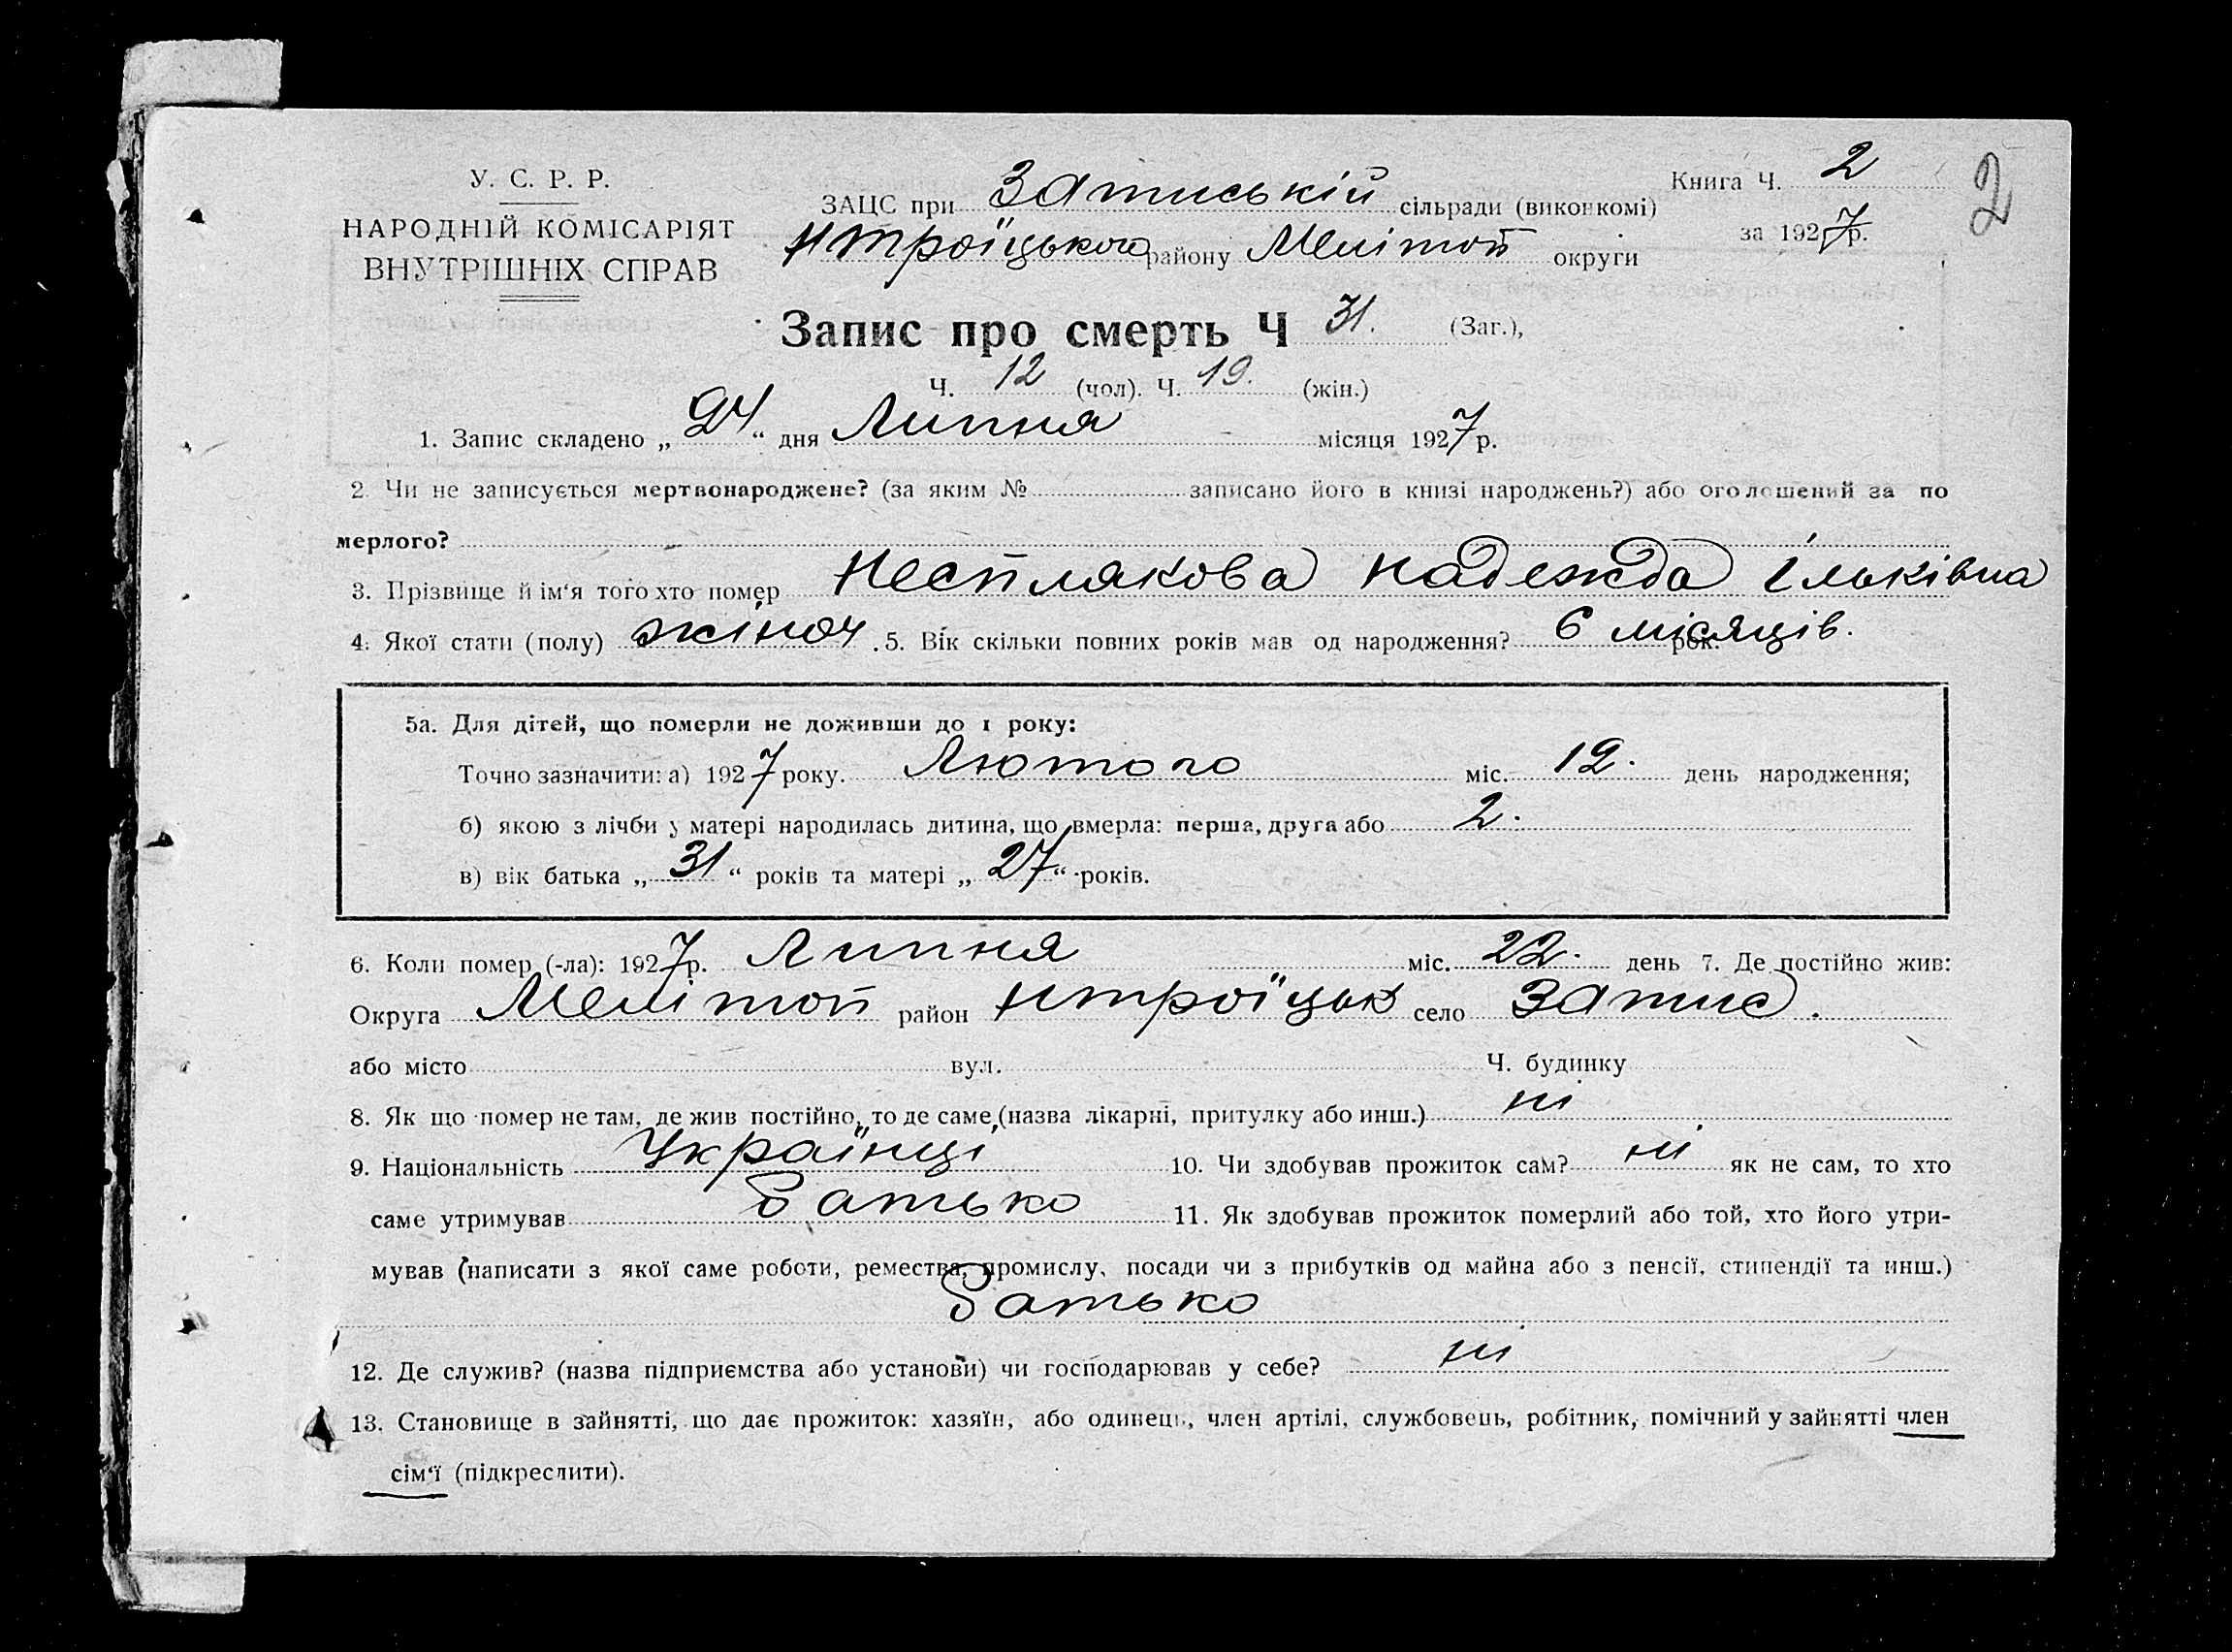 У. С. Р. Р.
НАРОДНІЙ КОМІСАРІЯТ
ВНУТРІШНІХ СПРАВ
ЗАЦС при Затиській сільради (виконкомі)
Нтроїцького району Мелітоп округи
Книга Ч. 2
за 1927р.
2
Запис про смерть Ч 31. (Заг.),
Ч. 12 (чол). Ч. 19. (жін.)
1. Запис складено „ 24 “ дня Липня місяця 1927р.
2. Чи не записується мертвонароджене? (за яким № записано його в книзі народжень?) або оголошений за по
мерлого?
3. Прізвище й ім‘я того хто помер Несплякова Надежда Ільківна
4. Якої стати (полу) жіноч. 5. Вік скільки повних років мав од народження? 6 місяців. рок.
5а. Для дітей, що померли не доживши до 1 року:
Точно зазначити: а) 1927 року. Лютого міс. 12. день народження;
б) якою з лічби у матері народилась дитина, що вмерла: перша, друга або 2.
в) вік батька „ 31 “ років та матері „ 27 “ років.
6. Коли помер (-ла): 1927р. Липня міс. 22. день 7. Де постійно жив:
Округа Мелітоп район Нтроїцьк село Затис.
або місто вул. Ч. будинку
8. Як що помер не там, де жив постійно, то де саме, (назва лікарні, притулку або инш.) ні
9. Національність Українці 10. Чи здобував прожиток сам? ні як не сам, то хто
саме утримував Батько 11. Як здобував прожиток померлий або той, хто його утри-
мував (написати з якої саме роботи, ремества, промислу, посади чи з прибутків од майна або з пенсії, стипендії та инш.)
Батько
12. Де служив? (назва підприємства або установи) чи господарював у себе? ні
13. Становище в зайнятті, що дає прожиток: хазяїн, або одинець, член артілі, службовець, робітник, помічний у зайнятті член
сім‘ї (підкреслити).